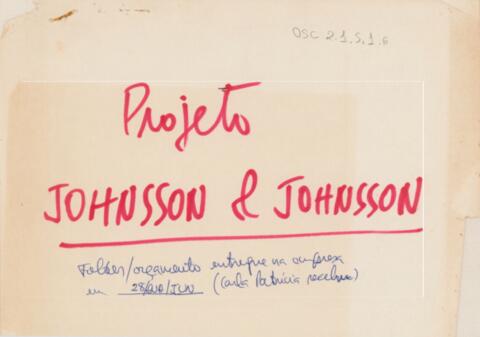 OSC 2.1.5.1.6
Projeto
JOHNSSON & JOHNSSON
Folder/orçamento entregue na empresa
em 28/JUN (Carla Patrícia recebeu)